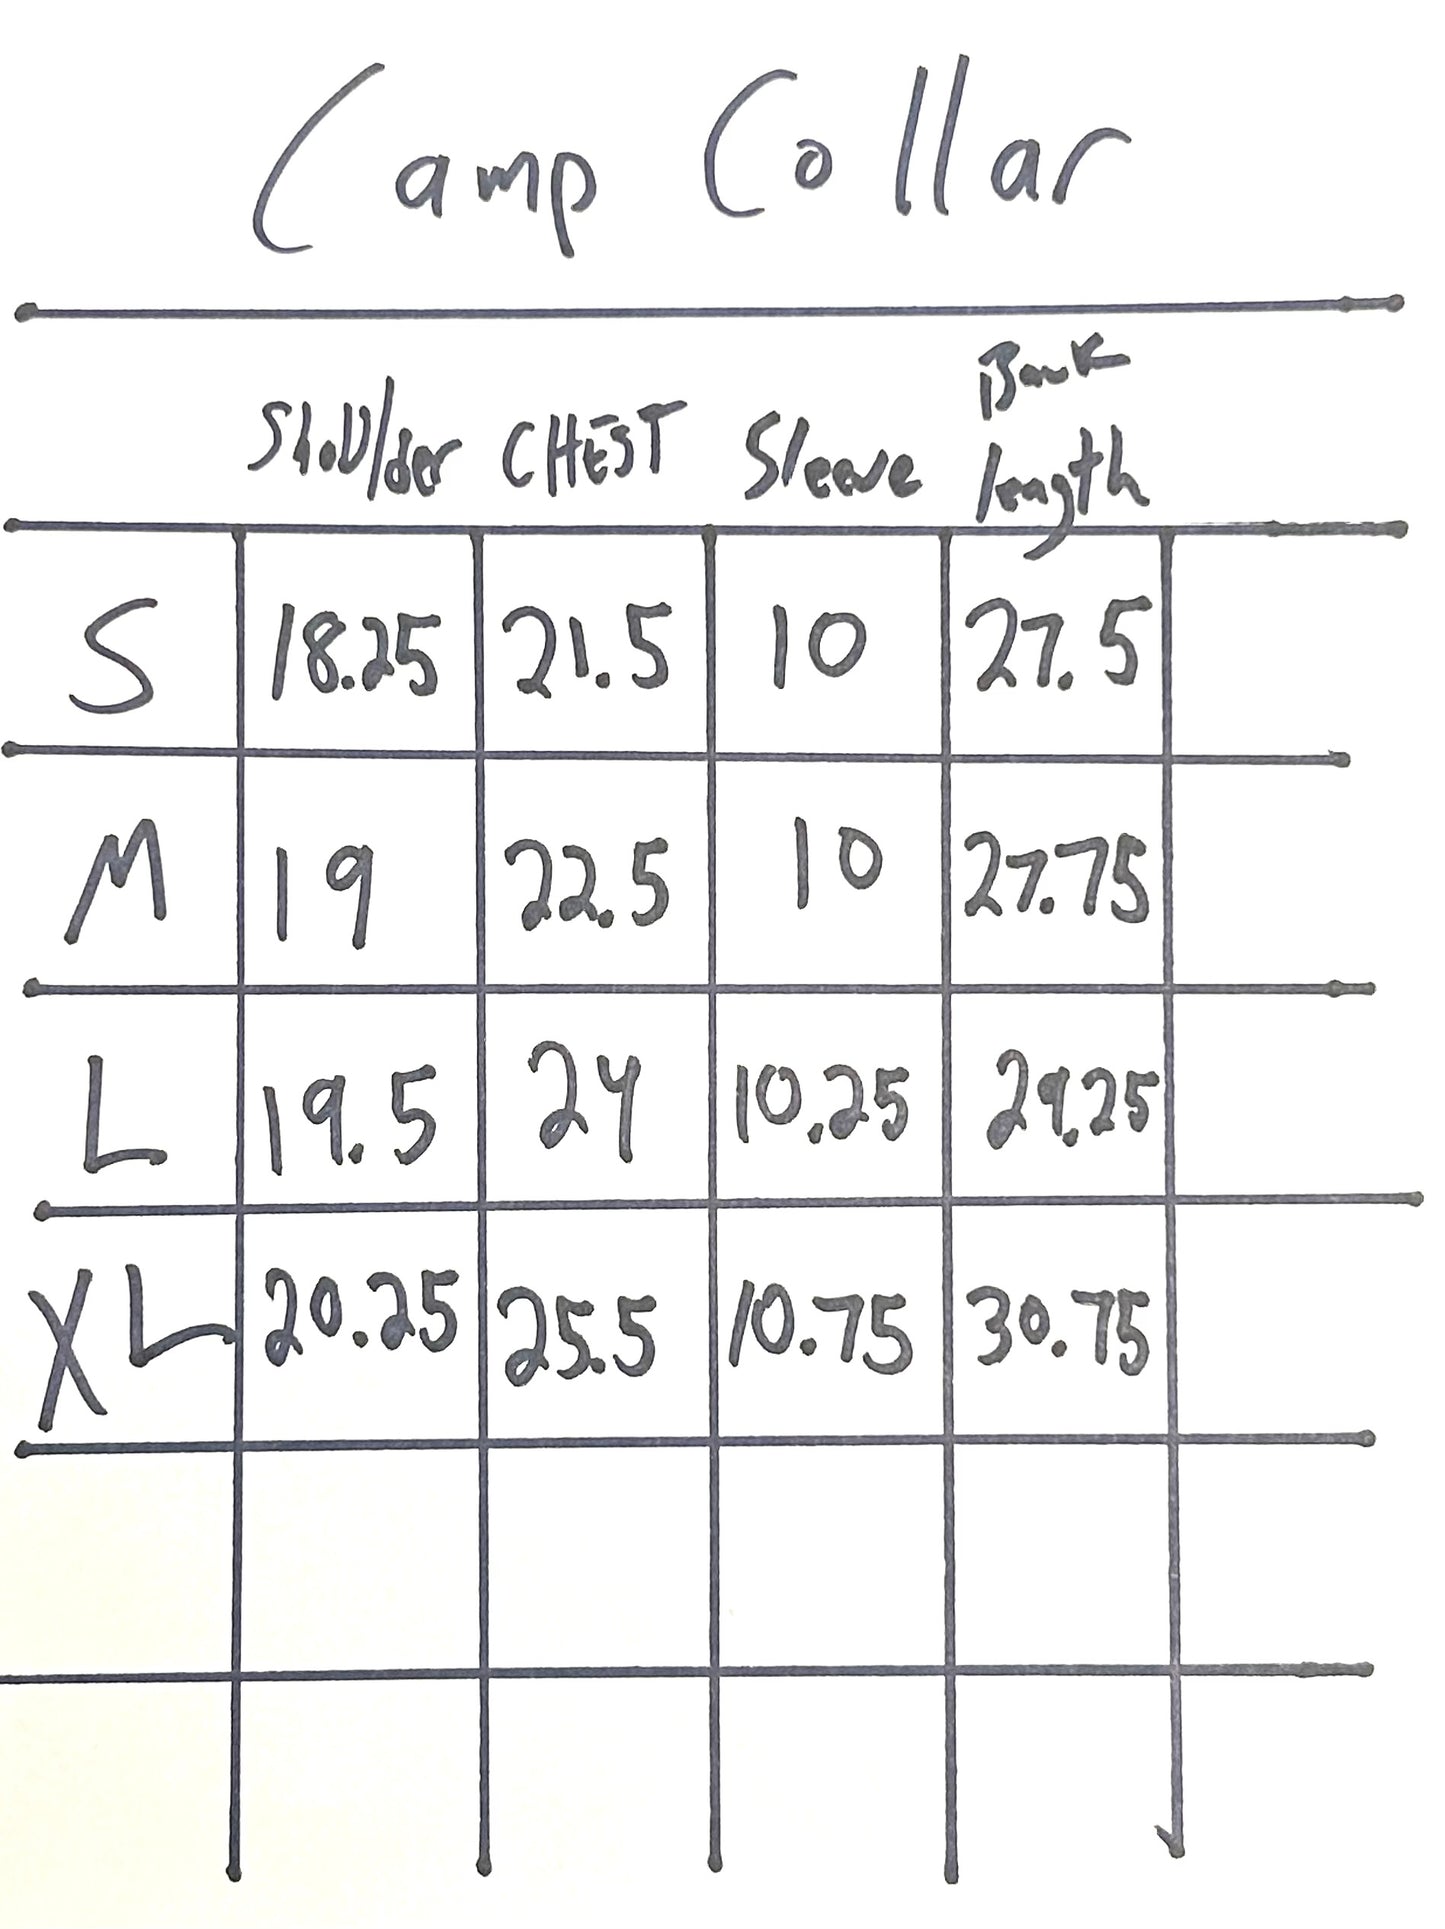 Camp Collar
Shoulder CHEST Sleeve Back length
S 18.25 21.5 10 27.5
M 19 22.5 10 27.75
L 19.5 24 10.25 29.25
XL 20.25 25.5 10.75 30.75